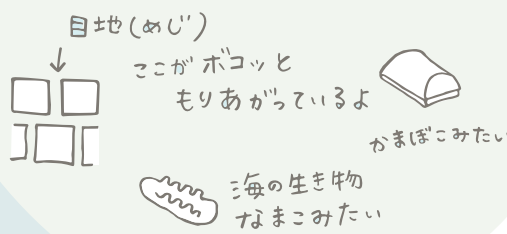 目地(めじ)
ここがボコッと
もりあがっているよ
かまぼこみたい
海の生き物
なまこみたい